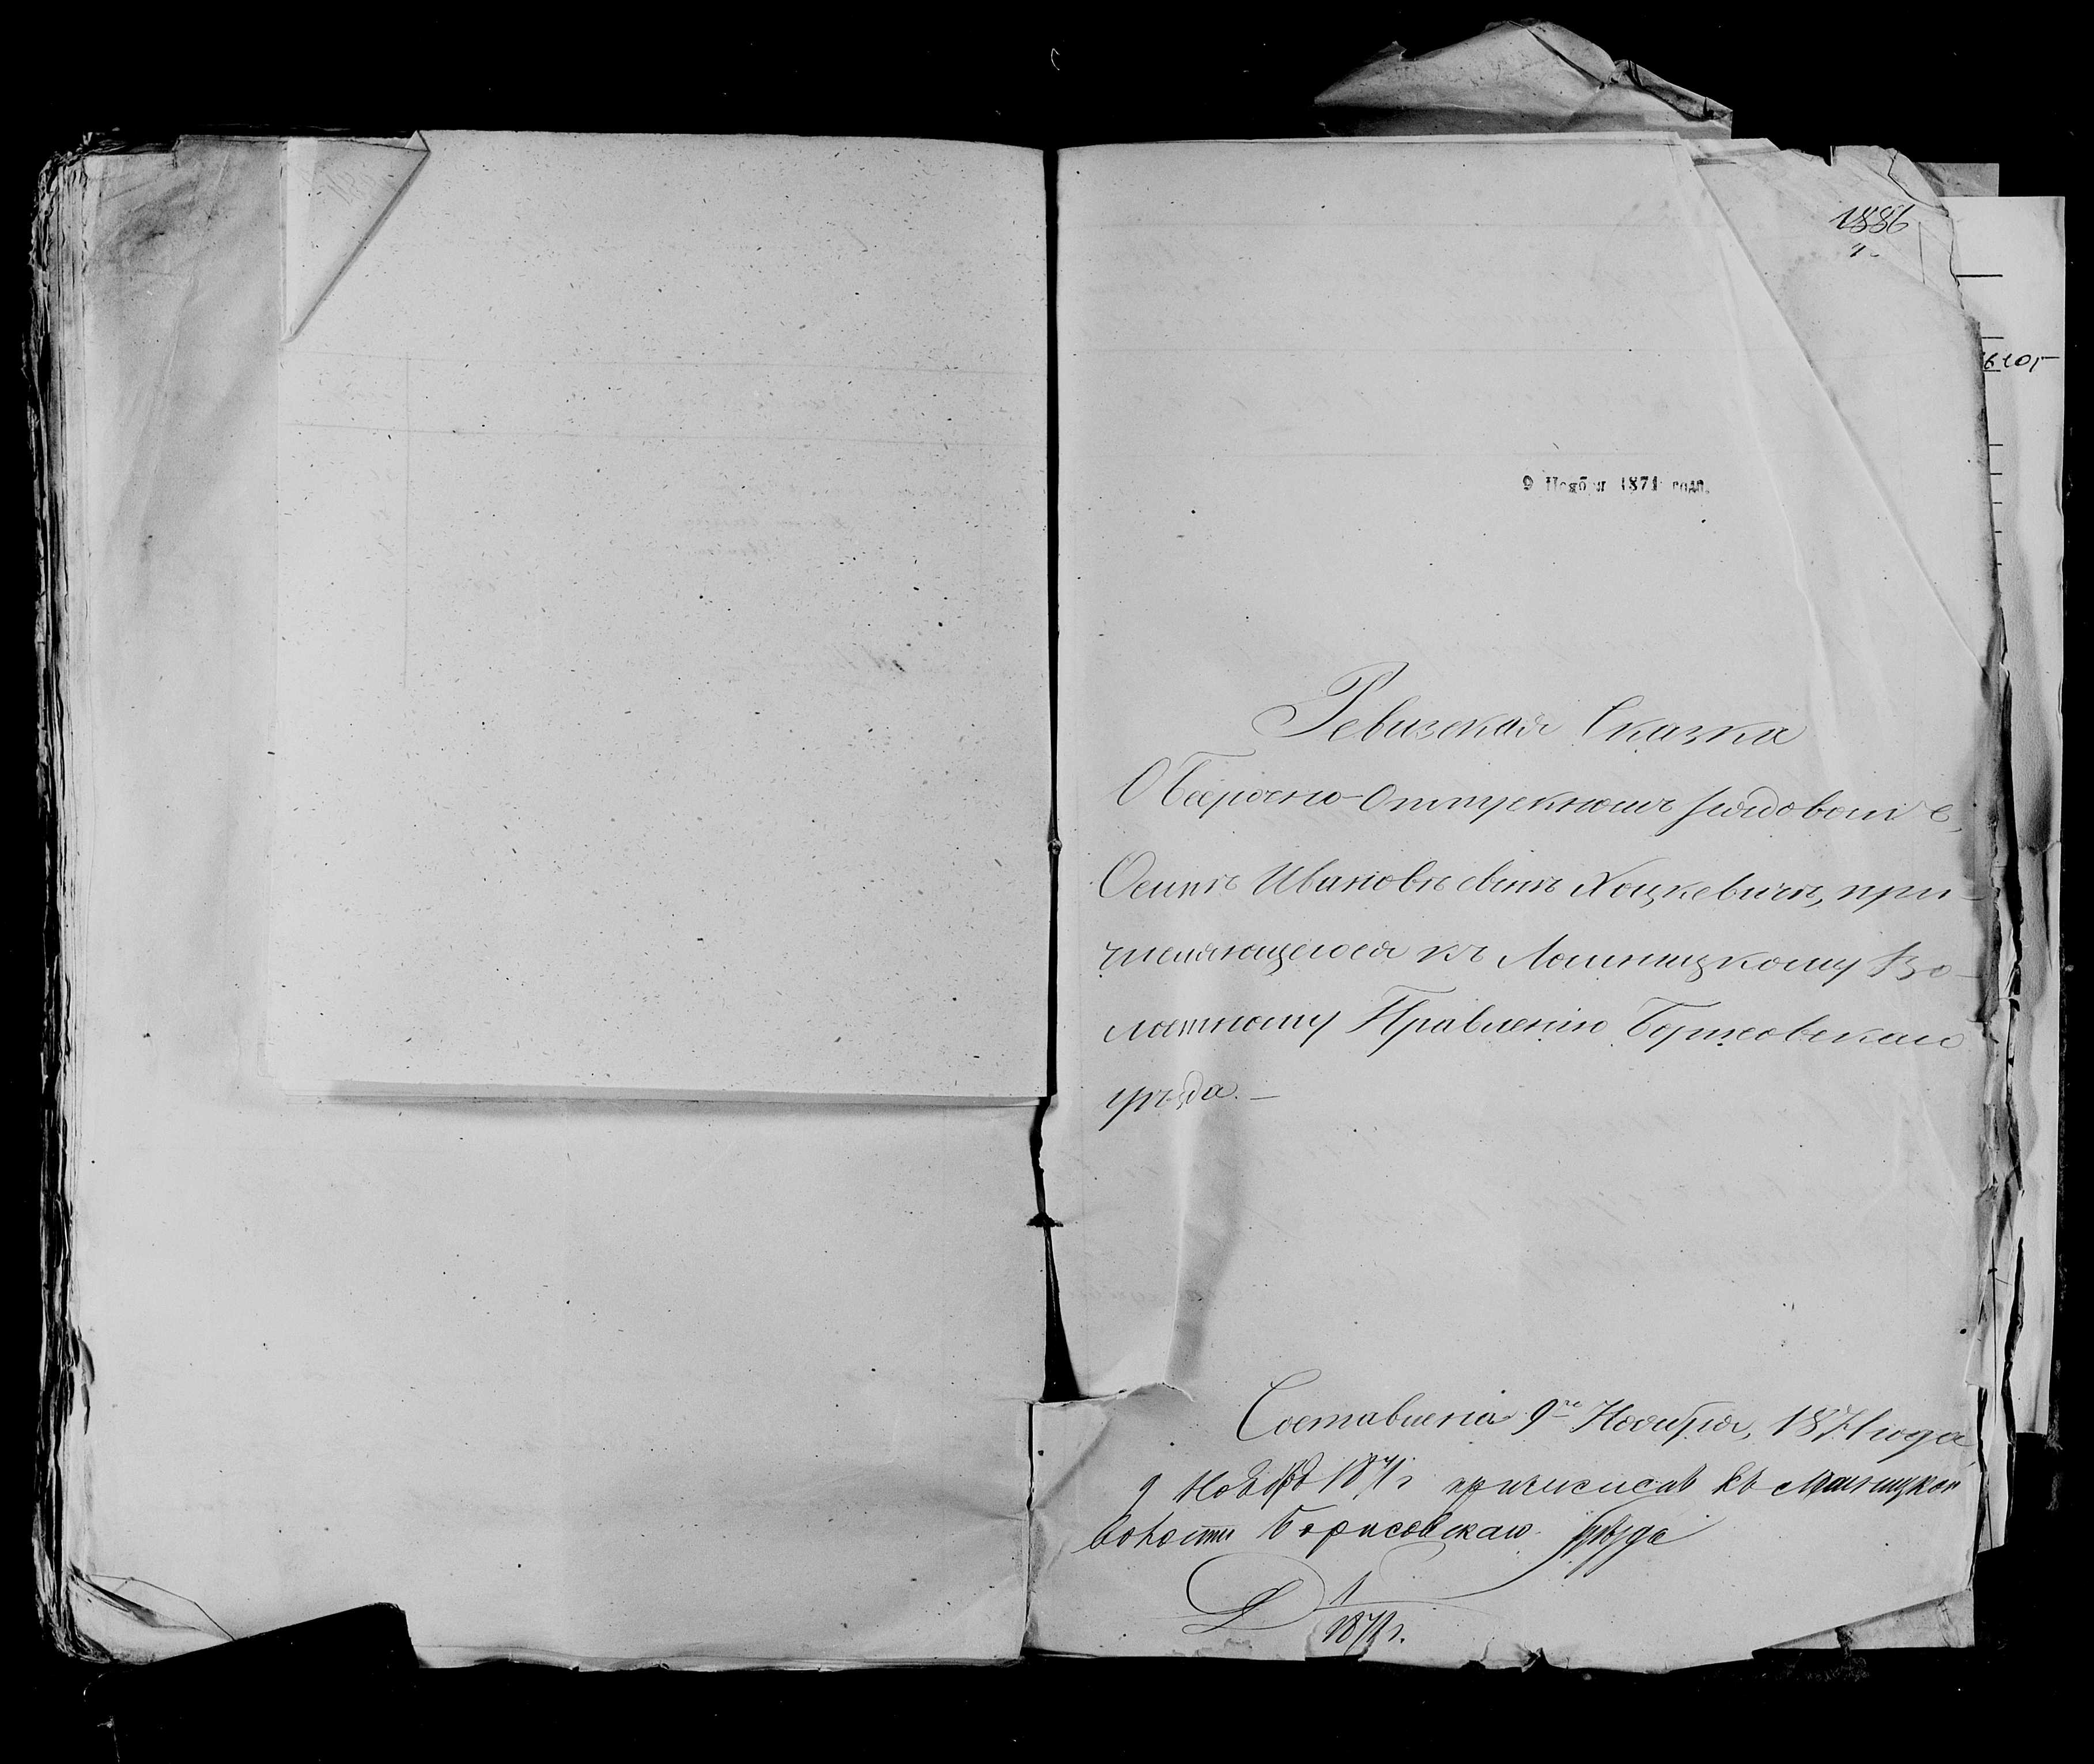 1886
9 Ноября 1871 года.
Ревизская Сказка
О Безсрочно-Отпускномъ рядовомъ
Осипѣ Ивановѣ сынѣ Хоцкевичѣ, при-
числяющегося къ Лошницкому Во-
лостному Правленію Борисовскаго
уѣзда. —
Составлена 9го Ноября, 1871 года
9 Нояб 1871 г причисленъ къ Лошницкой
волости Борисовскаго уѣзда
Д 1
1871 г.